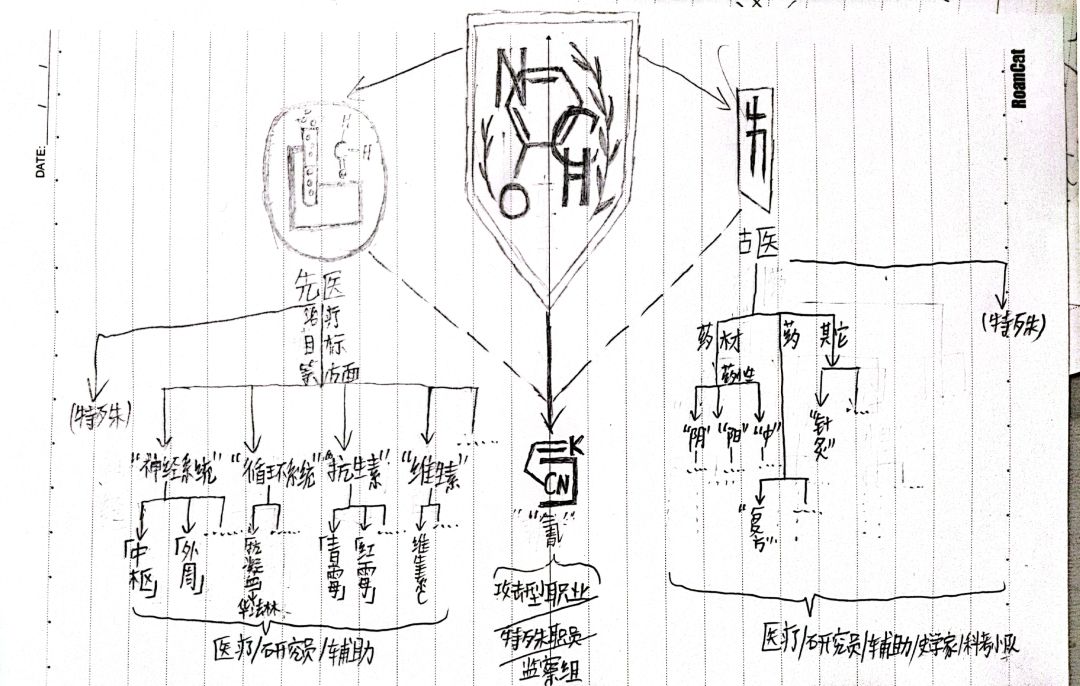 RoanCat
DATE: / /
N
C
H
O
H
H
先医
治疗
目标
等方面
(特殊)
"神经系统"
「中枢」
「外周」
......
"循环系统"
抗凝血
华法林
......
"抗生素"
「青霉」
「红霉」
......
"维生素"
维生素C
......
......
医疗/研究员/辅助
K
CN
"氰"
攻击型职业
特殊职员
监察组
古医
(特殊)
药材
药性
"阴"
......
"阳"
......
"中"
......
药
"复方"
......
其它
"针灸"
......
医疗/研究员/辅助/史学家/科考小队